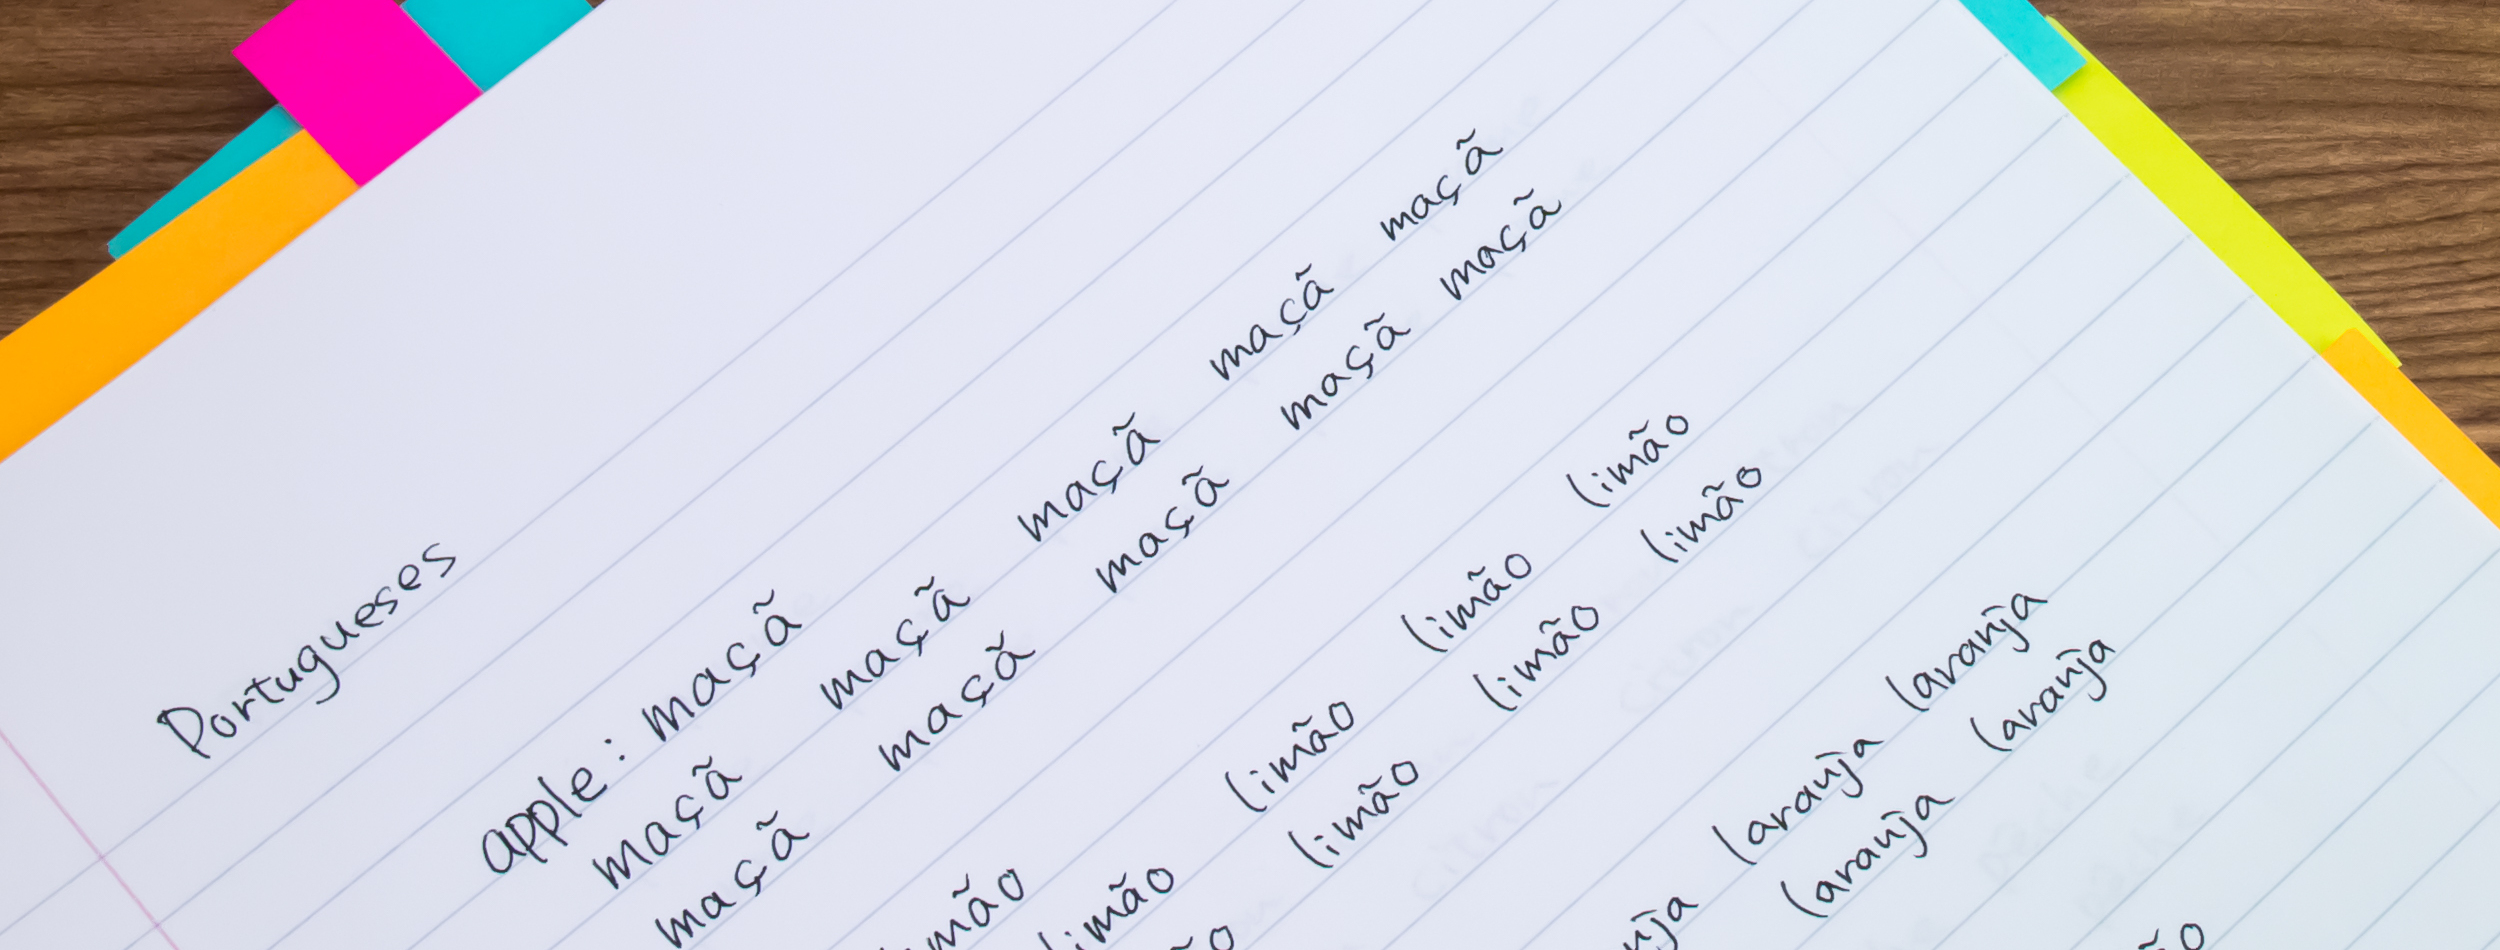 Portugueses
apple: maçã
maçã maçã maçã maçã maçã
maçã maçã maçã maçã maçã
limão limão limão limão
limão limão limão
laranja laranja
laranja laranja